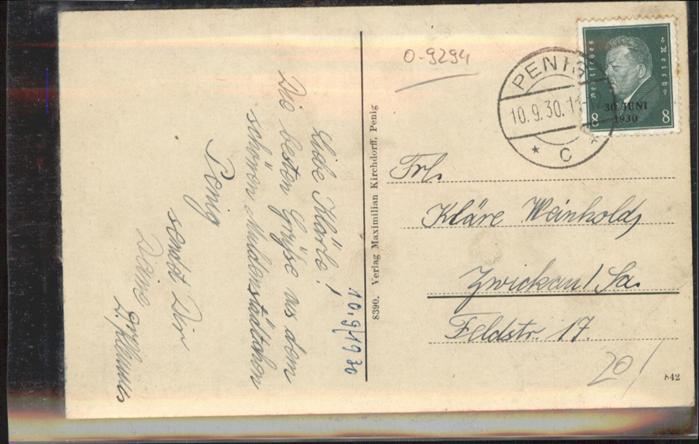 Liebe Kläre!
Die besten Grüße aus dem
schönen Muldenstädtchen
Penig
sendet Dir
Deine
10.9.1930
8390. Verlag Maximilian Kirchdorff, Penig
0-9294
PENIG
10.9.30.11
* C *
Deutsches Reich
30. JUNI
1930
8 8
Frl.
Kläre Weinhold,
Zwickau/Sa.
Feldstr. 17.
20/